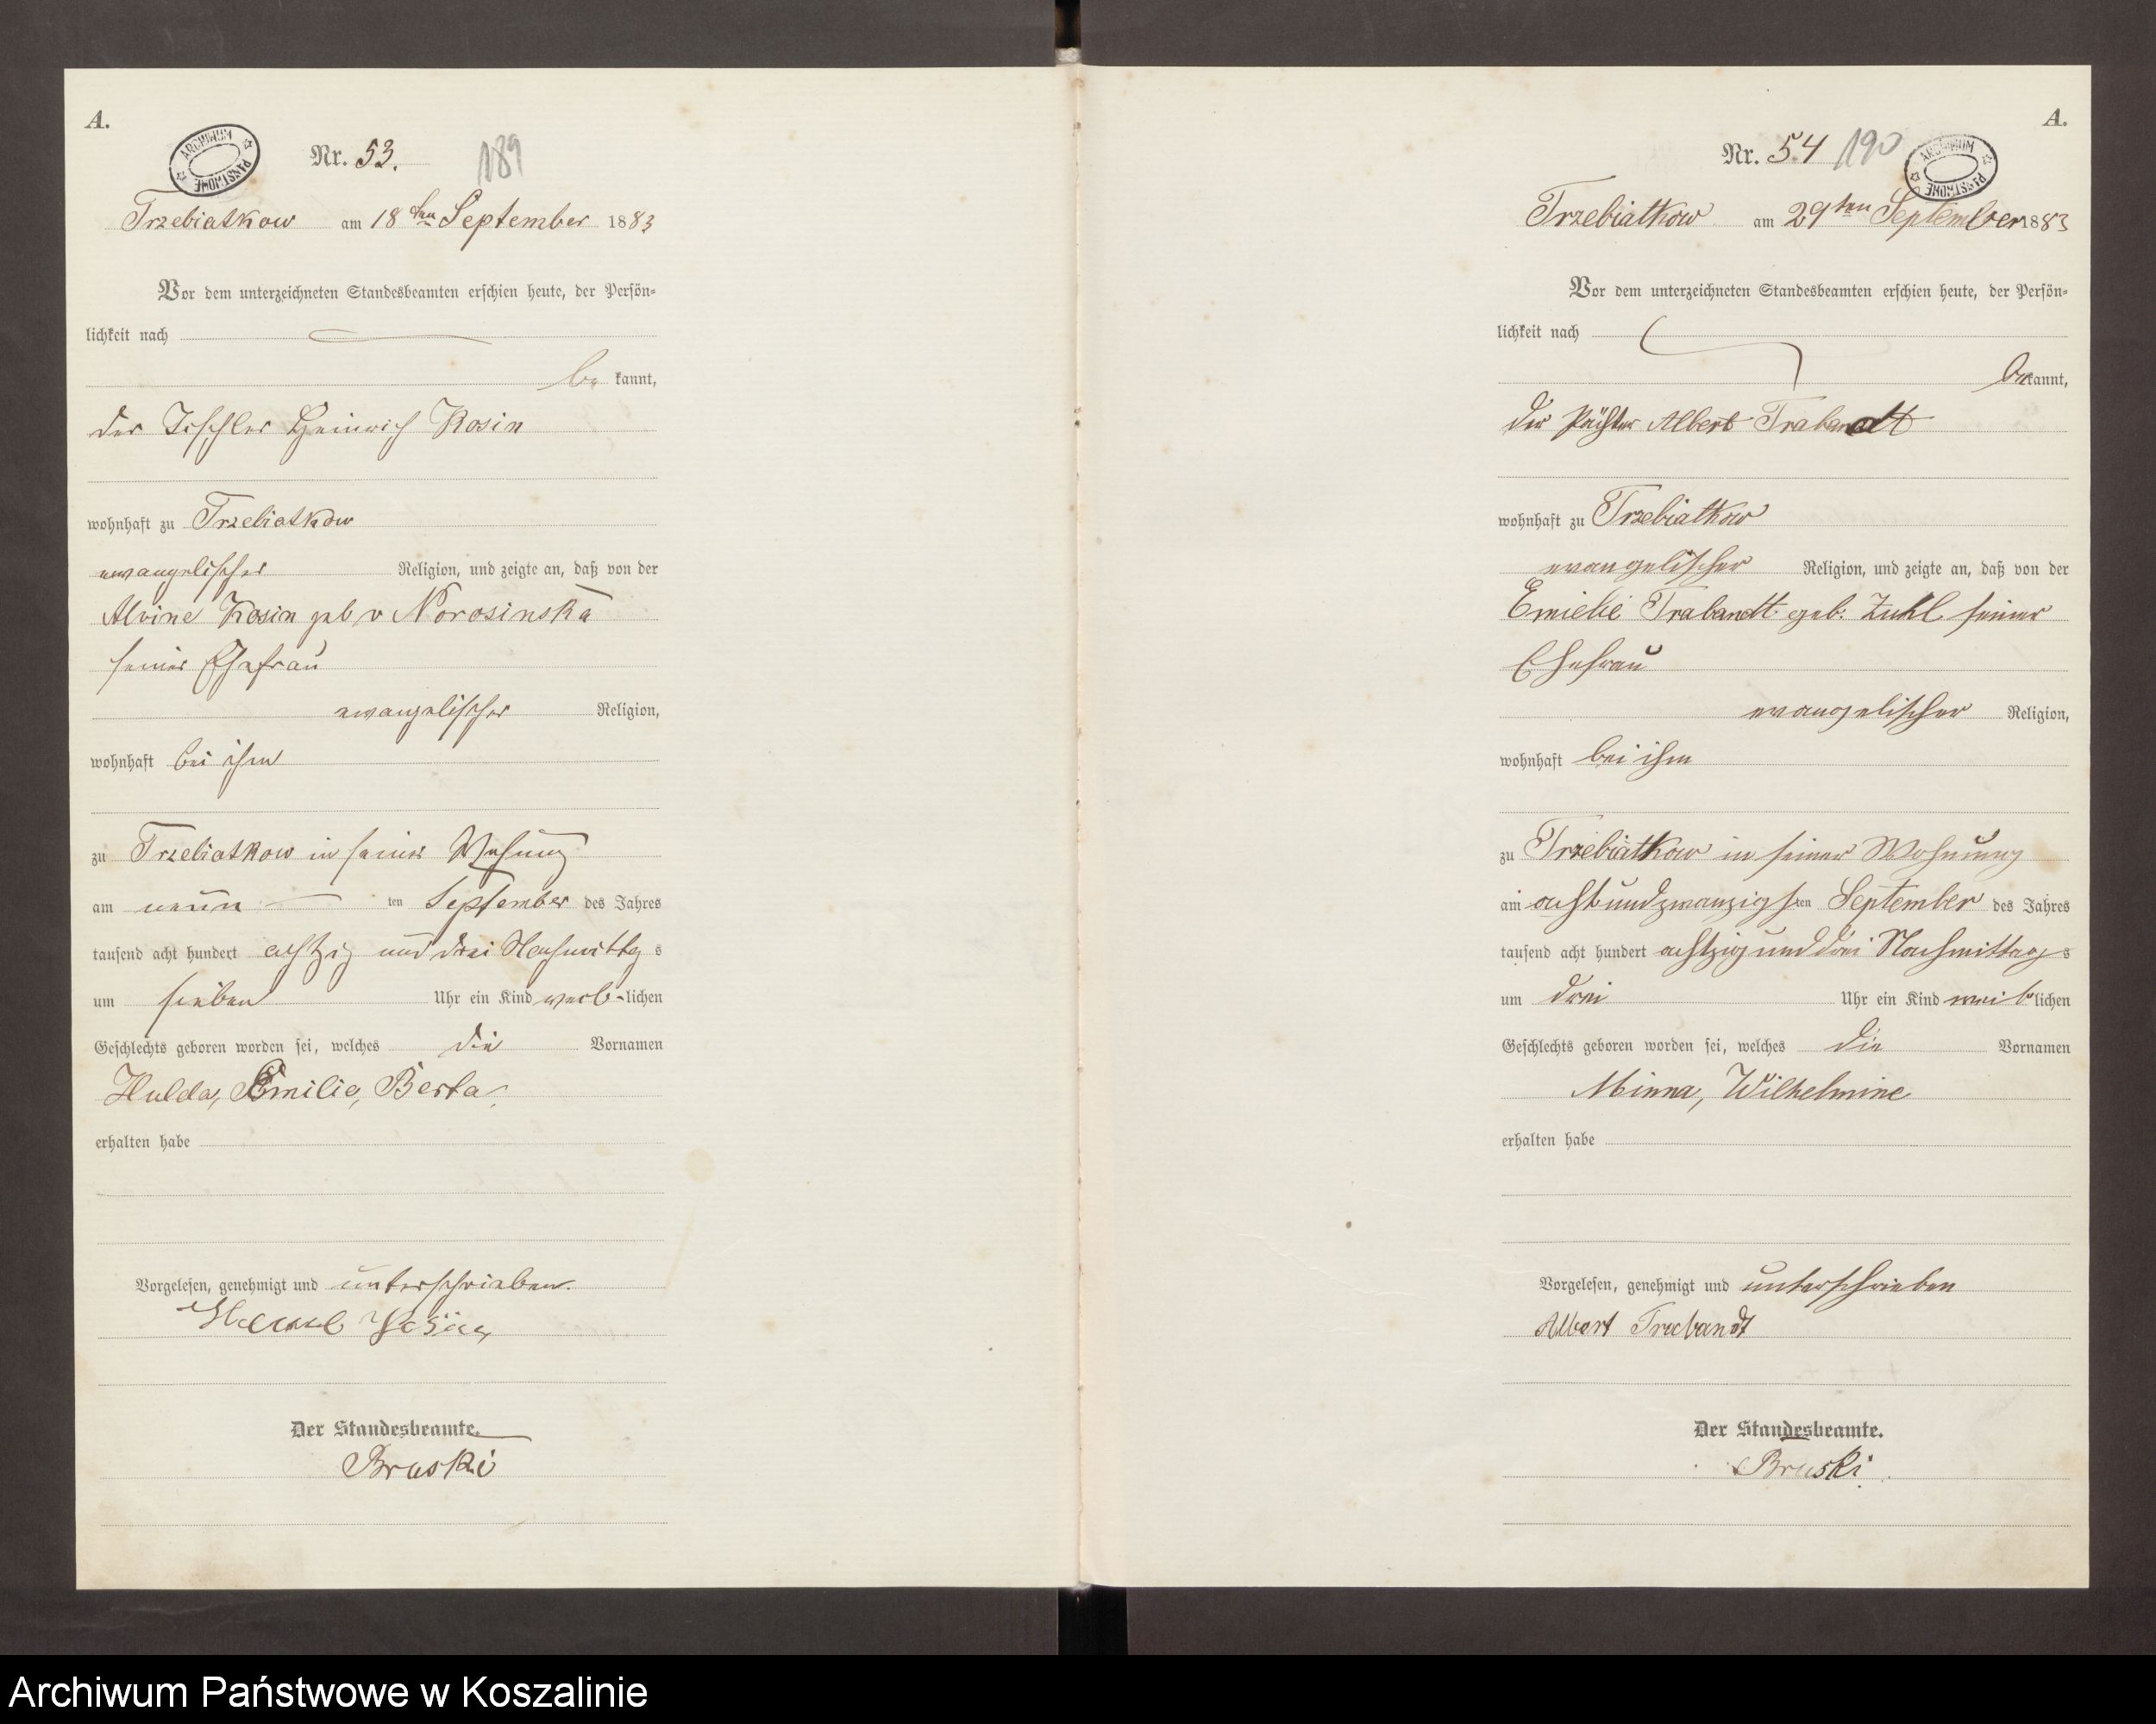 A.
ARCHIWUM PAŃSTWOWE
Nr. 53.
189
Trzebiatkow am 18ten September 1883
Vor dem unterzeichneten Standesbeamten erschien heute, der Persön-
lichkeit nach
be kannt,
der Tischler Heinrich Kosin
wohnhaft zu Trzebiatkow
evangelischer Religion, und zeigte an, daß von der
Alvine Kosin geb v Norosinska
seiner Ehefrau
evangelischer Religion,
wohnhaft bei ihm
zu Trzebiatkow in seiner Wohnung
am neun ten September des Jahres
tausend acht hundert achtzig und drei Nachmittag s
um sieben Uhr ein Kind weib-lichen
Geschlechts geboren worden sei, welches die Vornamen
Hulda, Emilie, Berta
erhalten habe
Vorgelesen, genehmigt und unterschrieben.
Der Standesbeamte.
Bruski
A.
ARCHIWUM PAŃSTWOWE
Nr. 54
190
Trzebiatkow am 29ten September 1883
Vor dem unterzeichneten Standesbeamten erschien heute, der Persön-
lichkeit nach
be kannt,
der Pächter Albert Trabandt
wohnhaft zu Trzebiatkow
evangelischer Religion, und zeigte an, daß von der
Emilie Trabandt geb. Zuhl seiner
Ehefrau
evangelischer Religion,
wohnhaft bei ihm
zu Trzebiatkow in seiner Wohnung
am achtundzwanzigsten September des Jahres
tausend acht hundert achtzig und drei Nachmittag s
um drei Uhr ein Kind weiblichen
Geschlechts geboren worden sei, welches die Vornamen
Minna, Wilhelmine
erhalten habe
Vorgelesen, genehmigt und unterschrieben
Albert Trabandt
Der Standesbeamte.
Bruski
Archiwum Państwowe w Koszalinie